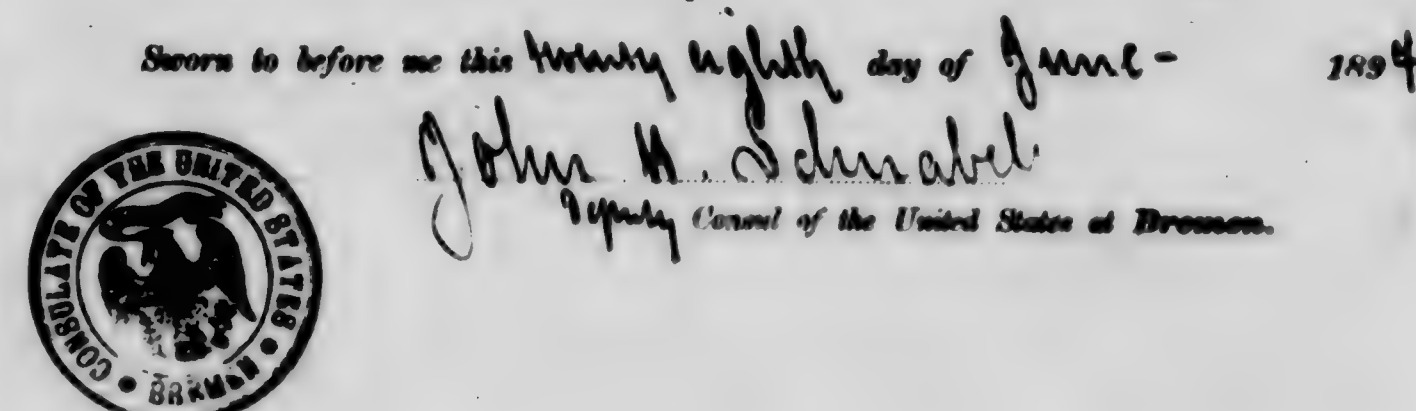 Sworn to before me this twenty eighth day of June - 1894
John H. Schnabel
Deputy Consul of the United States at Bremen.
CONSULATE OF THE UNITED STATES • BREMEN •